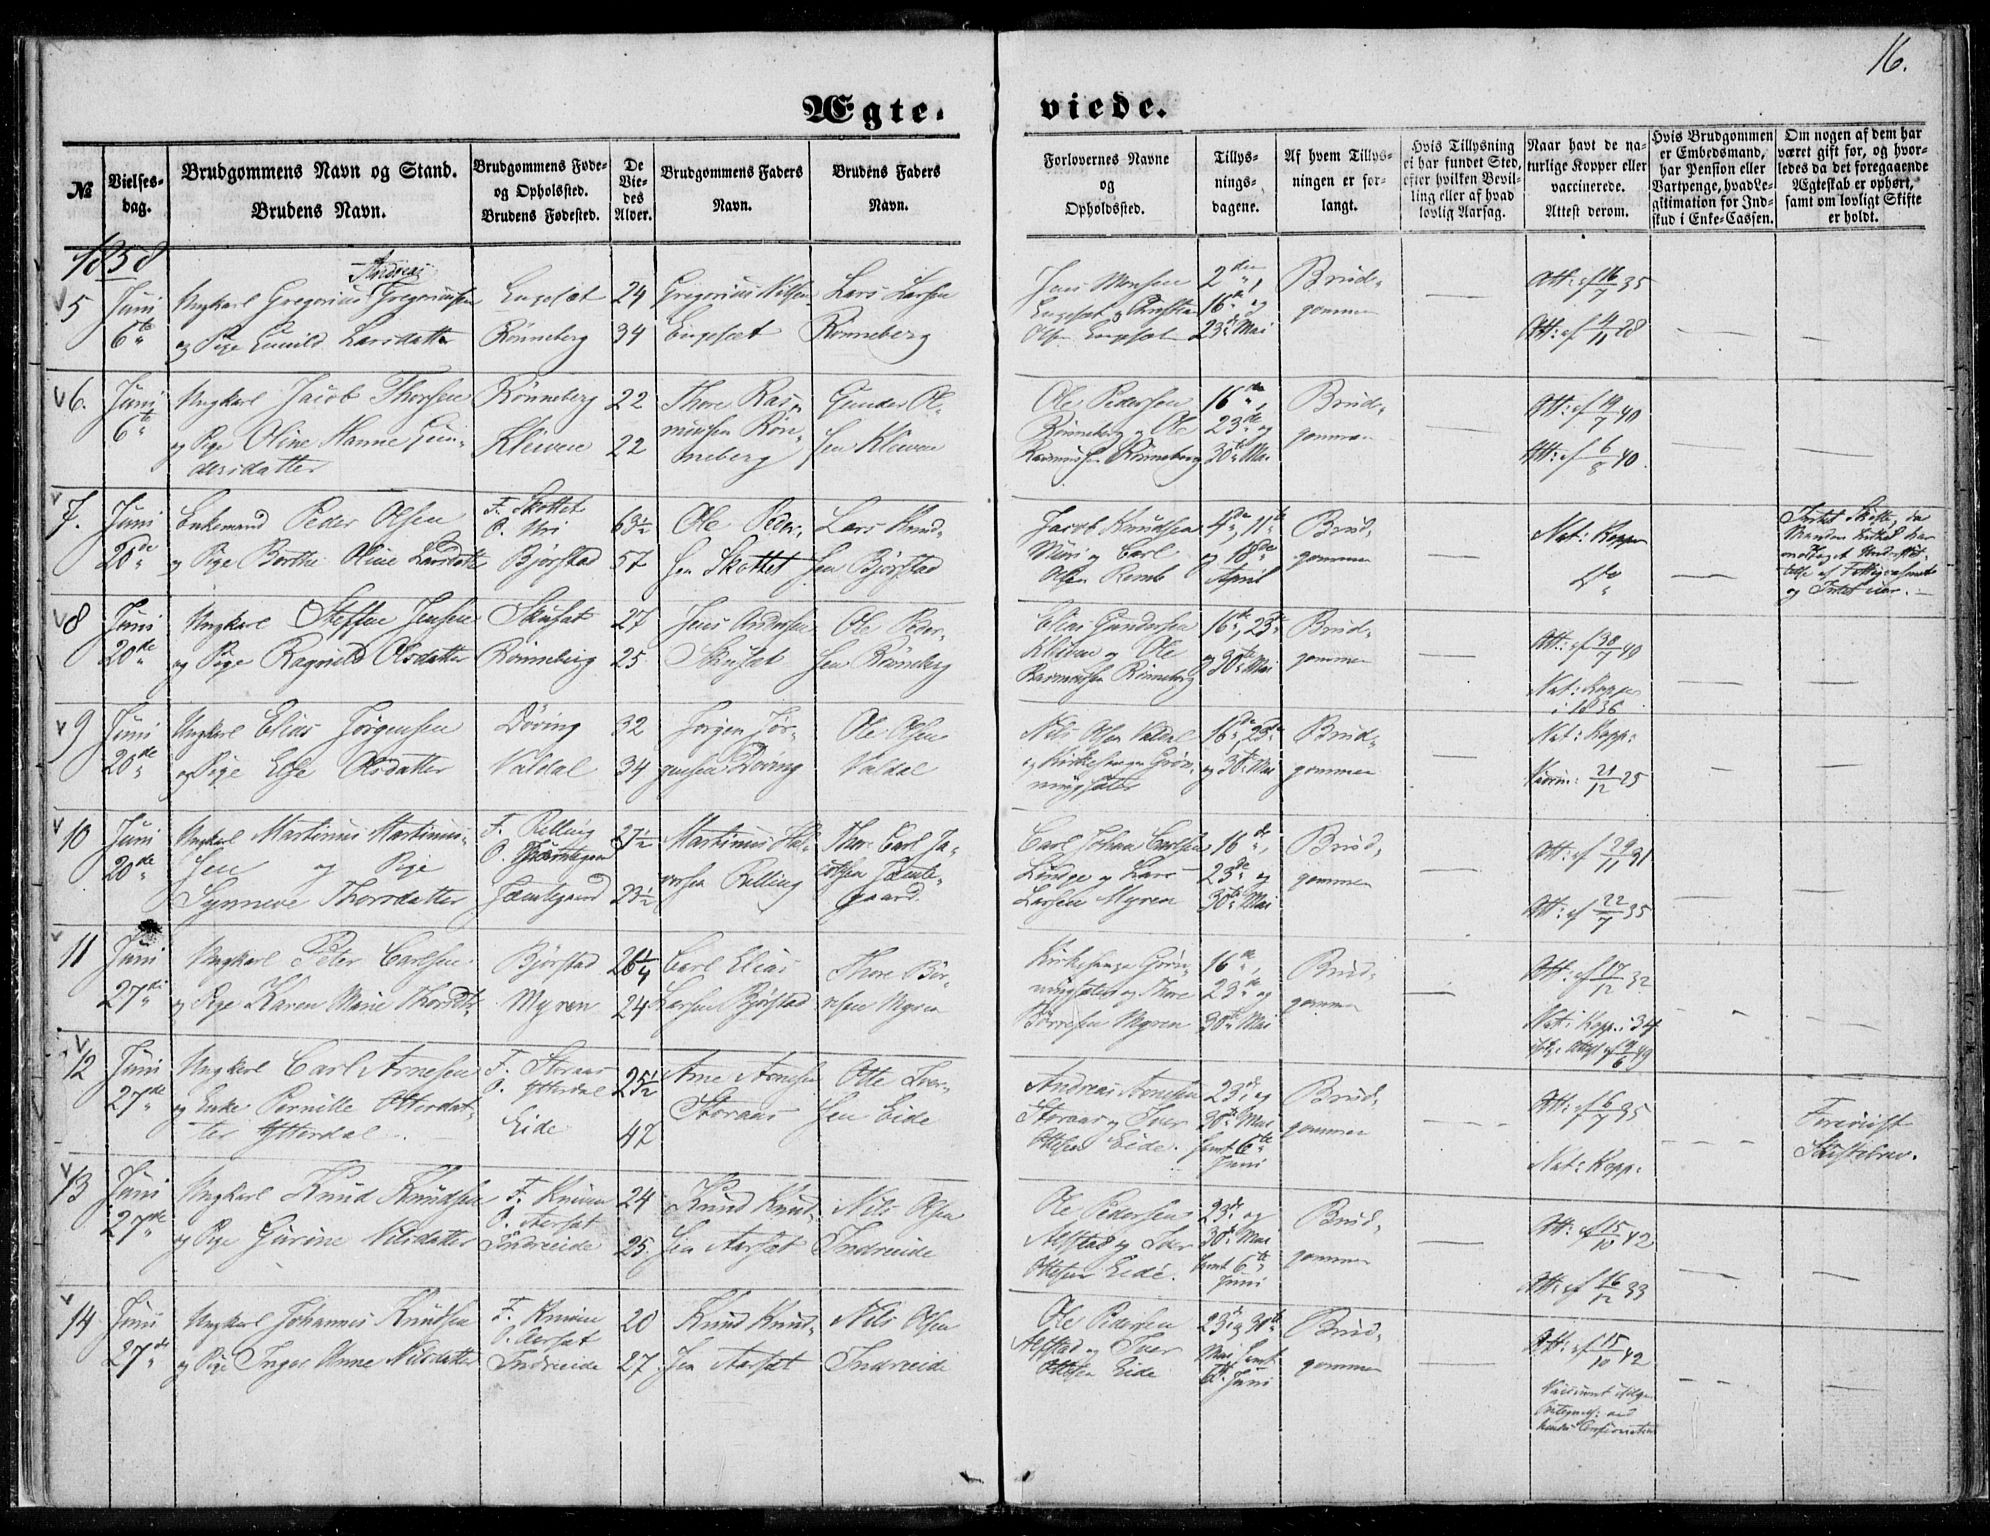 16.
Ægte-
viede.
№
Vielses-
dag.
Brudgommens Navn og Stand.
Brudens Navn.
Brudgommens Føde-
og Opholdssted.
Brudens Fødested.
De
Vie-
des
Alder.
Brudgommens Faders
Navn.
Brudens Faders
Navn.
Forlovernes Navne
og
Opholdssted.
Tillys-
nings-
dagene.
Af hvem Tillys-
ningen er for-
langt.
Hvis Tillysning
ei har fundet Sted,
efter hvilken Bevil-
ling eller af hvad
lovlig Aarsag.
Naar havt de na-
turlige Kopper eller
vaccinerede.
Attest derom.
Hvis Brudgommen
er Embedsmand,
har Pension eller
Vartpenge, hvad Le-
gitimation for Ind-
skud i Enke-Cassen.
Om nogen af dem har
været gift før, og hvor-
ledes da det foregaaende
Ægteskab er ophørt,
samt om lovligt Skifte
er holdt.
1858
5 Juni 6te
Ungkarl Gregorius Andreas Gregoriussen
og Pige Gunild Larsdatter
Engesæt 24
Rønneberg 34
Gregorius Nilsen
Engesæt
Lars Larsen
Rønneberg
Jens Monsen
Engesæt og
Olsen Engesæt
2den,
16de og
23de Mai
Brud-
gommen
Att: af 16/7 35
Att: af 4/11 28
6. Juni 6te
Ungkarl Jacob Thorsen
og Pige Oline Hanne Gun-
dersdatter
Rønneberg 22
Kleiven 22
Thore Ras-
mussen Røn-
neberg
Gunder Ol-
sen Kleiven
Ole Pedersen
Rønneberg og Ole
Rasmussen Rønneberg
16de,
23de og
30te Mai
Brud-
gommen
Att: af 19/7 40
Att: af 6/8 40
7. Juni 20de
Enkemand Peder Olsen
og Pige Berthe Oline Larsdatt
F. Skottet
O. Uri 63½
Bjørstad 57
Ole Peder-
sen Skottet
Lars Knud-
sen Bjørstad
Jacob Knudsen
Muri og Carl
Olsen Remb
4de, 11te
og 18de
April
Brud-
gommen
Nat: Kopper
do
Intet Skifte, da
og Intet eier.
8 Juni 20de
Ungkarl Steffen Jensen
og Pige Ragnild Olsdatter
Skusæt 27
Rønneberg 25
Jens Andersen
Skusæt
Ole Peder-
sen Rønneberg
Elias Gundersen
Kleiven og Ole
Rasmussen Rønneberg
16de, 23de
og 30te Mai
Brud-
gommen
Att: af 30/7 40
Nat: Kopper
i 1836
9 Juni 20de
Ungkarl Elias Jørgensen
og Pige Else Olsdatter
Døving 32
Valdal 34
Jørgen Jør-
gensen Døving
Ole Olsen
Valdal
Nils Olsen Valdal
og Kirkesanger Grøn-
ningsæter
16de, 23de
og 30te Mai
Brud-
gommen
Nat: Kopp:
Vaccin: 21/12 25
10 Juni 20de
Ungkarl Martinus Martinus-
sen og Pige
Synneve Thorsdatter
F. Relling 27½
Gjæmtegaard 23½
Martinus Hal-
vorsen Relling
Thor Carl Ja-
cobsen
gaard
Carl Johan Carlsen
Linge og Lars
Larsen Myren
16de,
23de og
30te Mai
Brud-
gommen
Att: af 29/11 31
Att: af 22/7 35
11 Juni 27de
Ungkarl Peter Carlsen
og Pige Karen Marie Thorsdt.
Bjørstad 26¼
Myren 24
Carl Elias
Larsen Bjørstad
Thore Bør-
resen Myren
Kirkesanger Grøn-
ningsæter og Thore
Børresen Myren
16de,
23de og
30te Mai
Brud-
gommen
Att: af 17/12 32
Nat: Kopp. i 34
ifølg: Attest af 9/6 49
12 Juni 27de
Ungkarl Carl Arnesen
og Enke Pernille Ottesdat-
ter Ytterdal
F. Storaas
O. Ytterdal 25½
Eide 42
Arne Arnesen
Storaas
Otte Iver-
sen Eide
Andreas Arnesen
Storaas og Iver
Ottesen Eide.
23de og
30te Mai
samt 6te
Juni
Brud-
gommen
Att: af 6/7 35
Nat: Kopp:
Foreviist
Skiftebrev.
13 Juni 27de
Ungkarl Knud Knudsen
og Pige Gurine Nilsdatter
F. Kniven 24
O. Aarsæt
Indreeide 25
Knud Knud-
sen Aarsæt
Nils Olsen
Indreeide
Ole Pedersen
Alstad og Iver
Ottesen Eide.
23de og
30te Mai
samt 6te
Juni
Brud-
gommen
Att: af 15/10 42
Att: af 16/12 33
14 Juni 27de
Ungkarl Johannes Knudsen
og Pige Inger Anne Nilsdatter
F. Kniven 20
O. Aarsæt
Indreeide 27
Knud Knud-
sen Aarsæt
Nils Olsen
Indreeide
Ole Pedersen
Alstad og Iver
Ottesen Eide
23de og 30te
Mai samt
6te Juni
Brud-
gommen
Att: af 15/10 42
Vaccineret ifølge